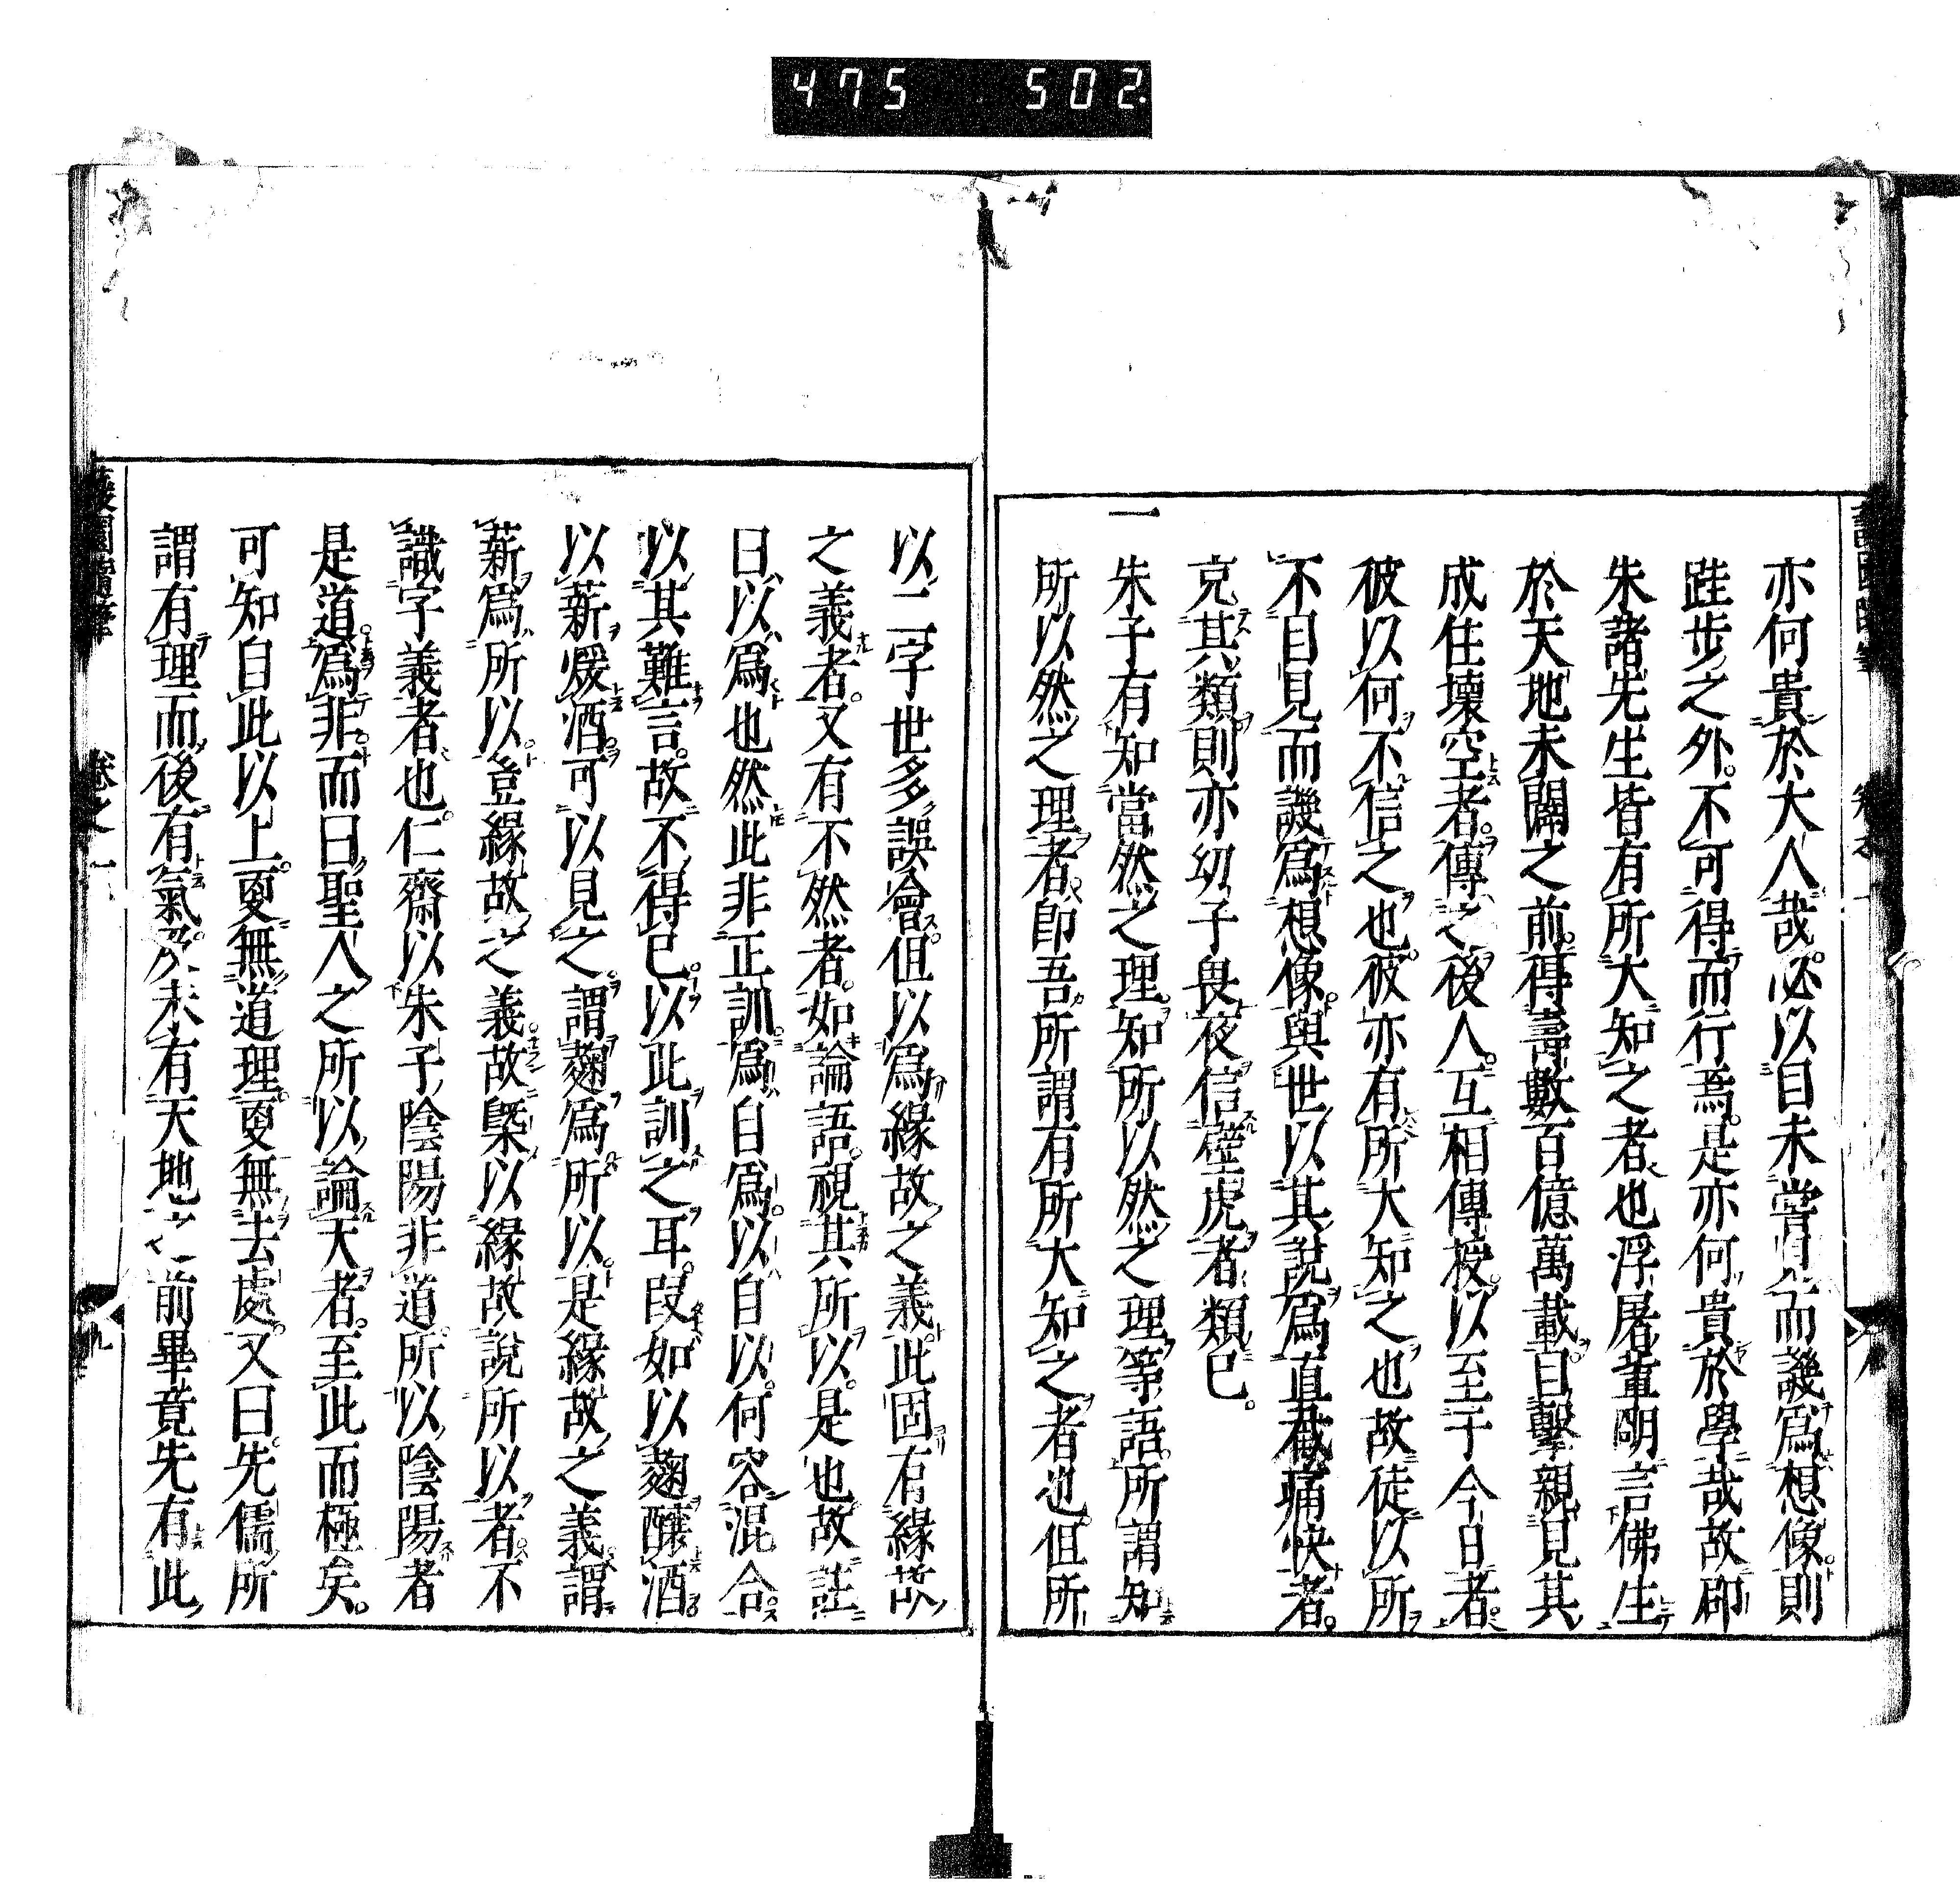 475 502.
亦何貴於大人哉必以目未嘗見而譏爲想像則
跬步之外不可得而行焉是亦何貴於學哉故郡
朱諸先生皆有所大知之者也浮屠輩明言佛生
於天地未闢之前得壽數百億萬載目擊親見其
成住壞空者傳之後人互相傳授以至于今日者
彼以何不信之也彼亦有所大知之也故徒以所
不目見而譏爲想像與世以其說爲直截痛快者
克其類則亦幼子畏夜信壁虎者類已
一朱子有知當然之理知所以然之理等語所謂知
所以然之理者即吾所謂有所大知之者也但所
以二字世多誤會但以爲緣故之義此固有緣故
之義者又有不然者如論語視其所以是也故註
曰以爲也然此非正訓爲自爲以自以何容混合
以其難言故不得已以此訓之耳叚如以麹釀酒
以薪煖酒可以見之謂麹爲所以是緣故之義謂
薪爲所以豈緣故之義故槩以緣故說所以者不
識字義者也仁齋以朱子陰陽非道所以陰陽者
是道爲非而曰聖人之所以論天者至此而極矣
可知自此以上更無道理更無去處又曰先儒所
謂有理而後有氣及未有天地之前畢竟先有此
蘐園隨筆 卷之一 九